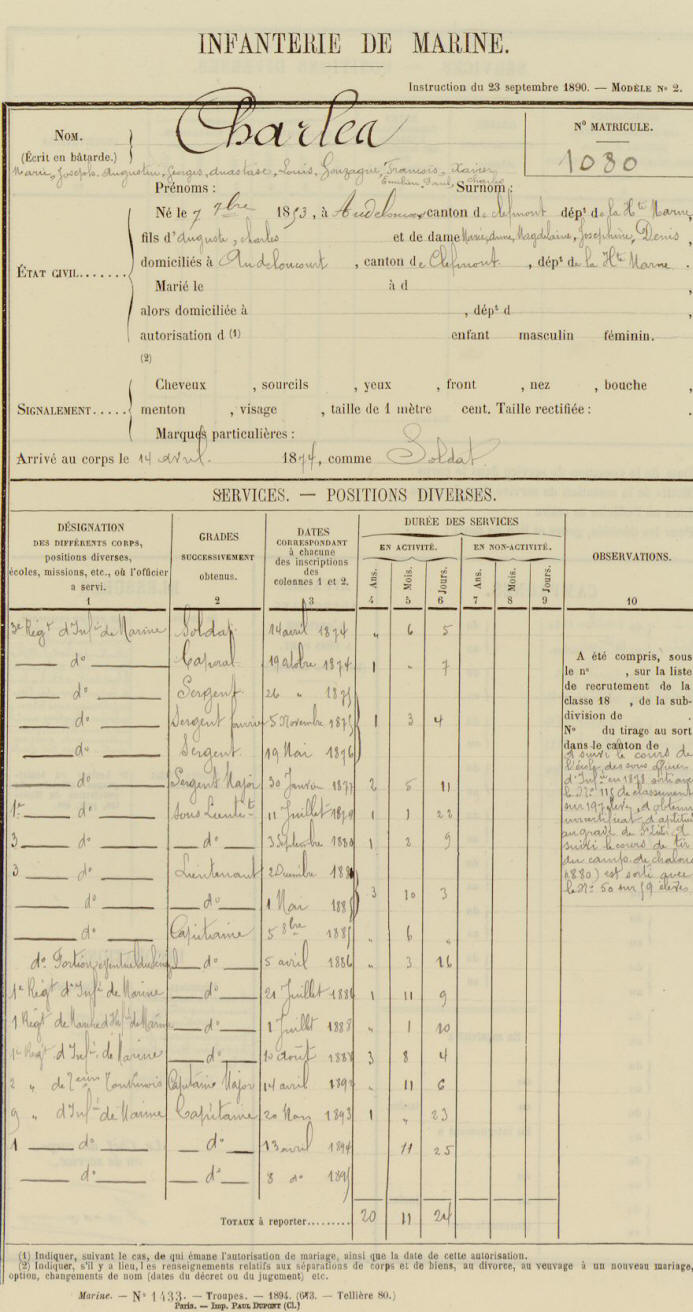 INFANTERIE DE MARINE.
Instruction du 23 septembre 1890. — MODÈLE No 2.
NOM.
(Écrit en bâtarde.)
Charles
No MATRICULE.
1030
Marie, Joseph, Augustin, Georges, Anastase, Louis, Gonzague, François, Xavier,
Emilien, Paul, Charles
Prénoms : Surnom :
Né le 7 7bre 1853, à Audeloncourt canton de Clefmont dépt de la Hte Marne,
fils d'Auguste, Charles et de dame Marie, Anne, Magdelaine, Joséphine, Denis,
ÉTAT CIVIL.......
domiciliés à Audeloncourt, canton de Clefmont, dépt de la Hte Marne.
Marié le à d ,
alors domiciliée à , dépt d ,
autorisation d (1) enfant masculin féminin.
(2)
Cheveux , sourcils , yeux , front , nez , bouche ,
SIGNALEMENT.....
menton , visage , taille de 1 mètre cent. Taille rectifiée : .
Marques particulières :
Arrivé au corps le 14 avril. 1874, comme Soldat.
SERVICES. — POSITIONS DIVERSES.
DÉSIGNATION
DES DIFFÉRENTS CORPS,
positions diverses,
écoles, missions, etc., où l'officier
a servi.
1
GRADES
SUCCESSIVEMENT
obtenus.
2
DATES
CORRESPONDANT
à chacune
des inscriptions
des
colonnes 1 et 2.
3
DURÉE DES SERVICES
EN ACTIVITÉ. EN NON-ACTIVITÉ.
Ans. Mois. Jours. Ans. Mois. Jours.
4 5 6 7 8 9
OBSERVATIONS.
10
3e Régt d'Infie de Marine Soldat 14 avril 1874 " 6 5
— do — Caporal 19 octobre 1874 1 " 7
— do — Sergent 26 " 1875
— do — Sergent fourrier 5 Novembre 1875 1 3 4
— do — Sergent 19 Mai 1876
— do — Sergent Major 30 Janvier 1877 2 5 11
1er — do — Sous Lieutt 11 Juillet 1879 1 1 22
3 — do — — do — 3 Septembre 1880 1 2 9
3 — do — Lieutenant 2 Décembre 1881
— do — — do — 1 Mai 1885 3 10 3
— do — Capitaine 5 8bre 1885 " 6 "
do Portion — do — 5 avril 1886 " 3 16
1er Régt d'Infie de Marine — do — 21 Juillet 1886 1 11 9
1 Régt de Marche d'Infie de Marine — do — 1 Juillet 1888 " 1 10
1er Régt d'Infie de Marine — do — 10 août 1888 3 8 4
2 " de Tonkinois Capitaine Major 14 avril 1892 " 11 6
9 " d'Infie de Marine Capitaine 20 Mars 1893 1 " 23
1 — do — — do — 13 avril 1894 11 25
— do — — do — 8 do 1895
TOTAUX à reporter......... 20 11 24
A été compris, sous
le no , sur la liste
de recrutement de la
classe 18 , de la sub-
division de .
No du tirage au sort
dans le canton de
A suivi le cours de
l'école des sous officiers
d'Infie en 1878 sorti avec
le No 115 de classement
sur 197 élèves, a obtenu
un certificat d'aptitude
au grade de S/Lieut. A
suivi le cours de tir
du camp de Chalons
(1880) est sorti avec
le No 50 sur 59 élèves
(1) Indiquer, suivant le cas, de qui émane l'autorisation de mariage, ainsi que la date de cette autorisation.
(2) Indiquer, s'il y a lieu, les renseignements relatifs aux séparations de corps et de biens, au divorce, au veuvage à un nouveau mariage,
option, changements de nom (dates du décret ou du jugement) etc.
Marine. — No 1433. — Troupes. — 1894. (673. — Tellière 80.)
Paris. — Imp. PAUL DUPONT (Cl.)